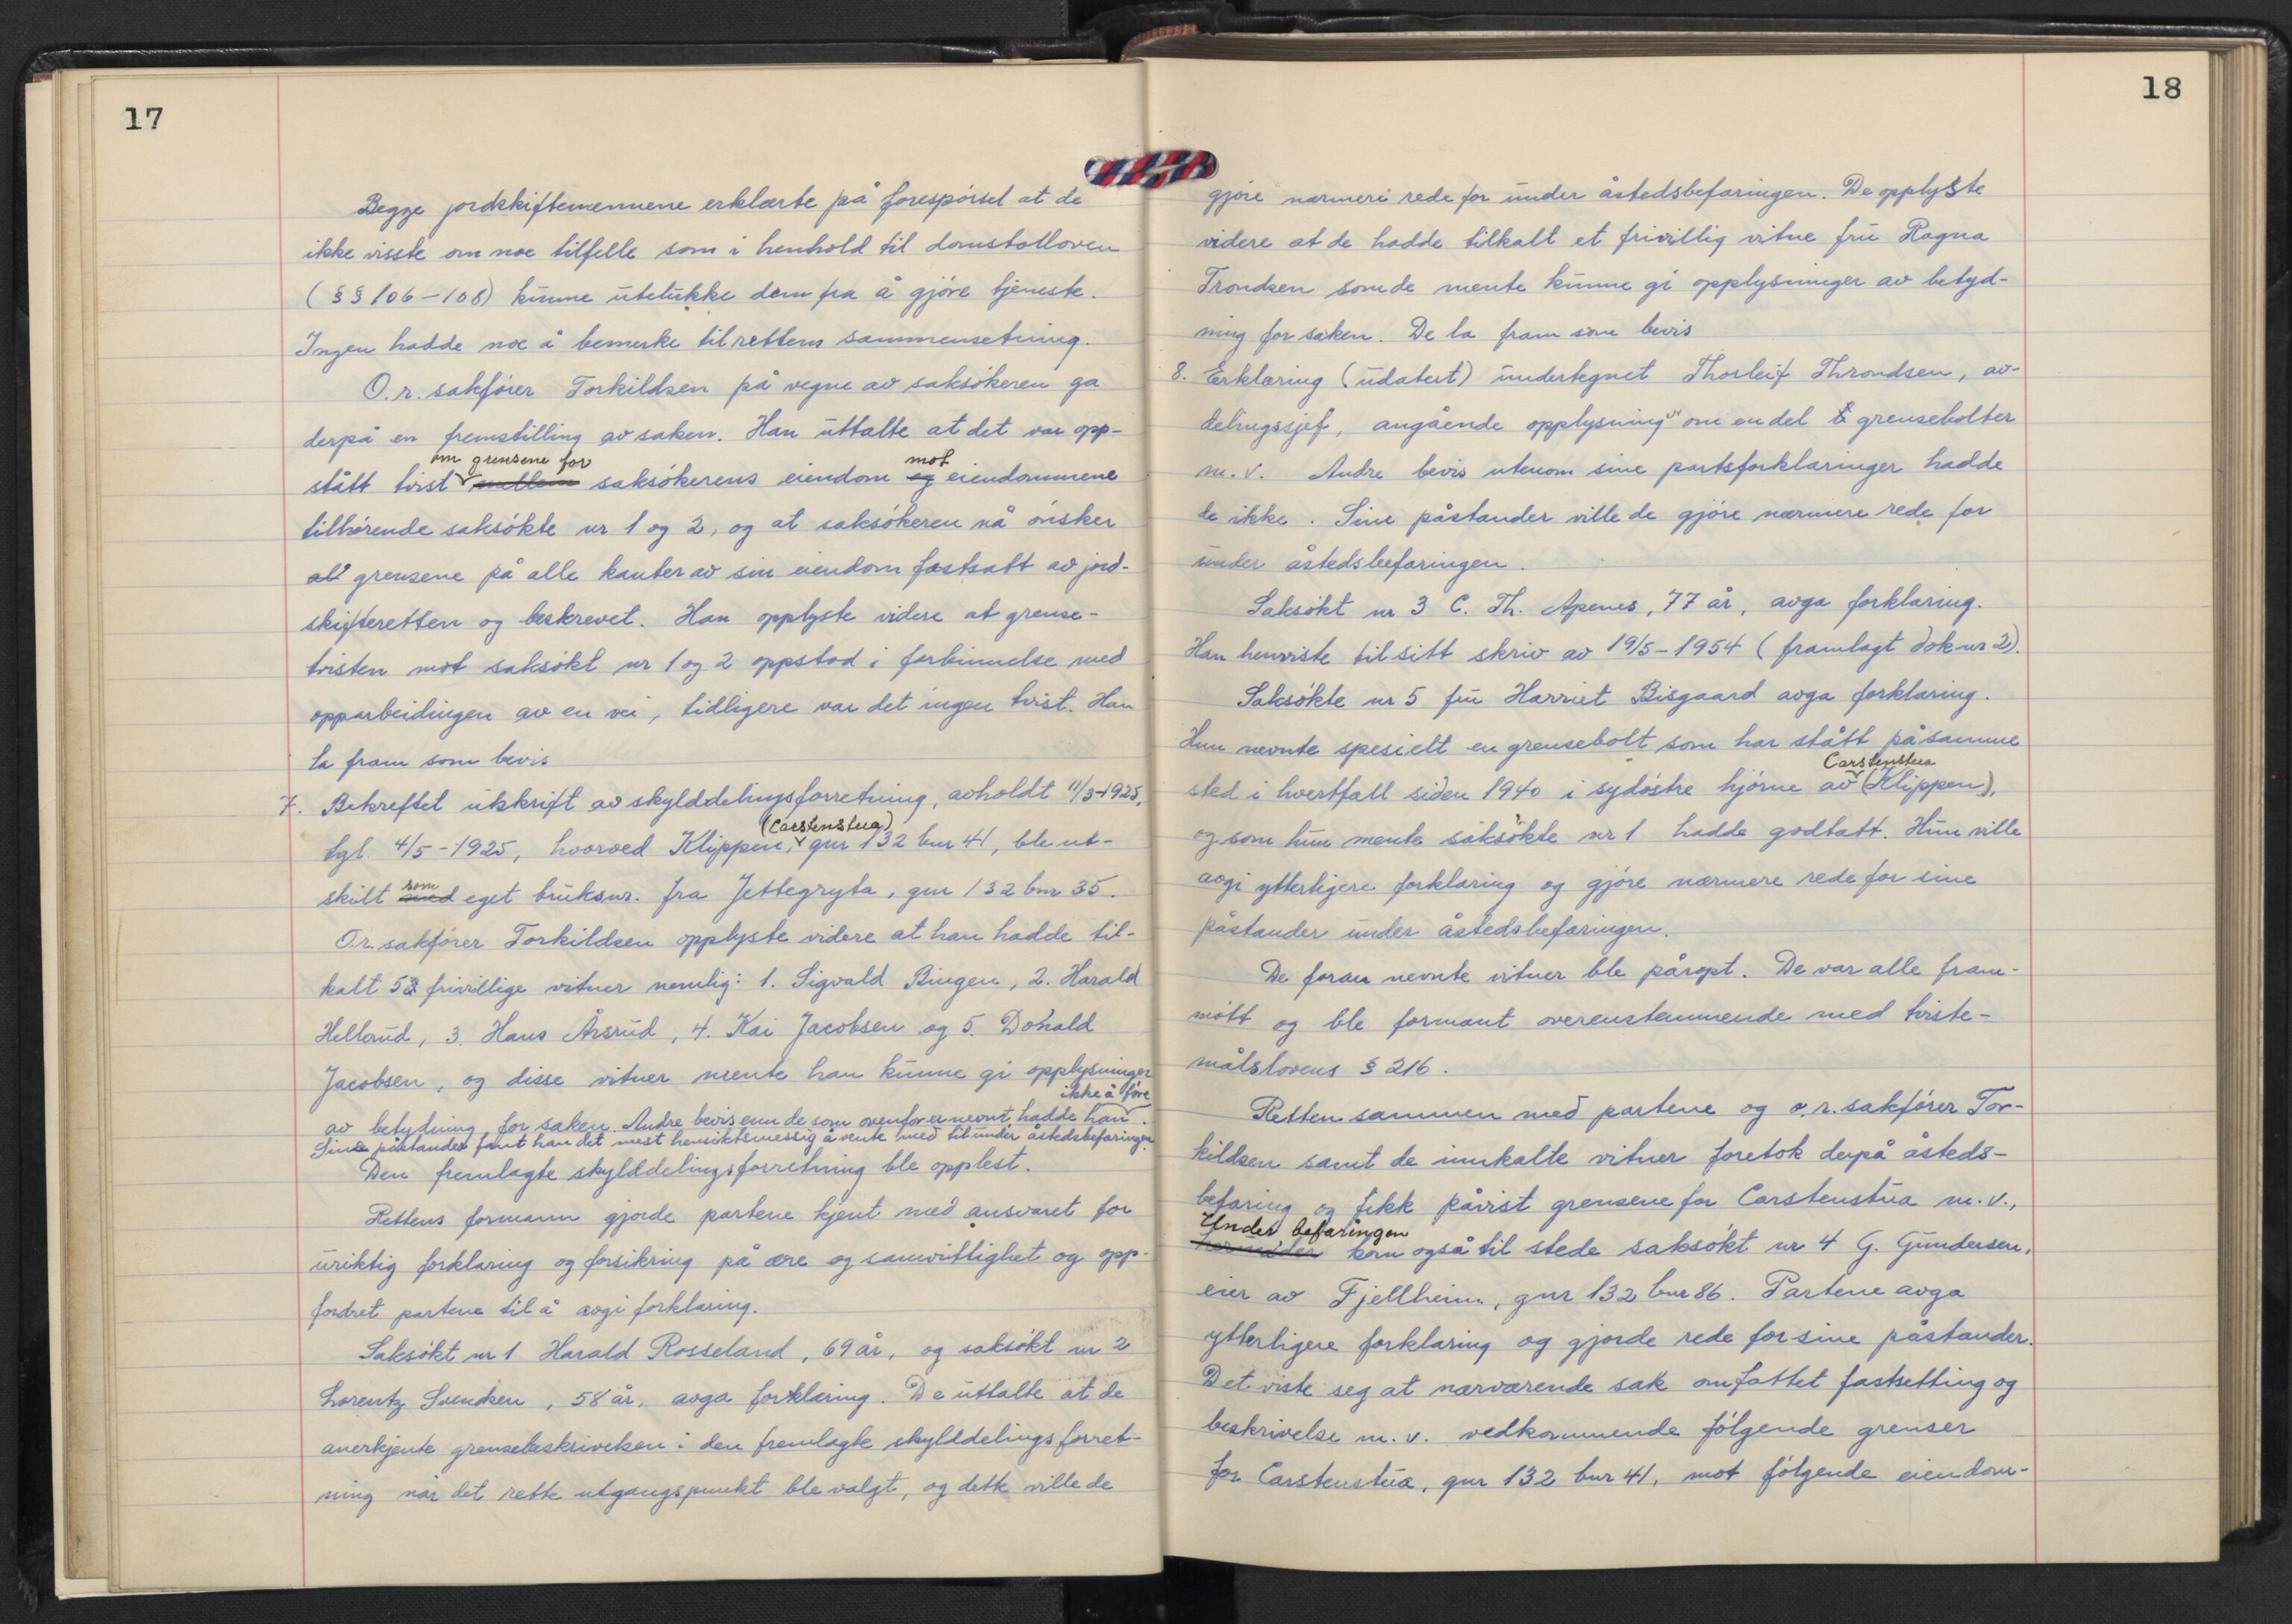 17
Begge jordskiftemennene erklærte på forespørsel at de
ikke visste om noe tilfelle som i henhold til domstolloven
(§§ 106-108) kunne utelukke dem fra å gjøre tjeneste.
Ingen hadde noe å bemerke til rettens sammensetning.
O.r. sakfører Torkildsen på vegne av saksøkeren ga
derpå en fremstilling av saken. Han uttalte at det var opp-
om grensene for mot
stått tvist mellem saksøkerens eiendom og eiendommene
tilhørende saksøkte nr 1 og 2, og at saksøkeren nå ønsker
alt grensene på alle kanter av sin eiendom fastsatt av jord-
skifteretten og beskrevet. Han opplyste videre at grense-
tvisten mot saksøkt nr 1 og 2 oppstod i forbinnelse med
opparbeidingen av en vei, tidligere var det ingen tvist. Han
la fram som bevis
7. Bekreftet utskrift av skylddelingsforretning, avholdt 11/3-1925,
(Carstenstua)
tgl. 4/5-1925, hvorved Klippen, gnr 132 bnr 41, ble ut-
som
skilt med eget bruksnr. fra Jettegryta, gnr 132 bnr 35.
O.r. sakfører Torkildsen opplyste videre at han hadde til-
kalt 5 frivillige vitner nemlig: 1. Sigvald Bingen, 2. Harald
Hellerud, 3. Hans Årsrud, 4. Kai Jacobsen og 5. Donald
Jacobsen, og disse vitner mente han kunne gi opplysninger
ikke å føre
av betydning for saken. Andre bevis enn de som ovenfor er nevnt, hadde han.
Sine påstander fant han det mest hensiktsmessig å vente med til under åstedsbefaringen.
Den fremlagte skylddelingsforretning ble opplest.
Rettens formann gjorde partene kjent med ansvaret for
uriktig forklaring og forsikring på ære og samvittighet og opp-
fordret partene til å avgi forklaring.
Saksøkt nr 1 Harald Rosseland, 69 år, og saksøkt nr 2
Lorentz Svendsen, 58 år, avga forklaring. De uttalte at de
anerkjente grensebeskrivelsen i den fremlagte skylddelingsforret-
ning når det rette utgangspunkt ble valgt, og dette ville de
18
gjøre nærmere rede for under åstedsbefaringen. De opplyste
videre at de hadde tilkalt et frivillig vitne fru Ragna
Trondsen som de mente kunne gi opplysninger av betyd-
ning for saken. De la fram som bevis
8. Erklæring (udatert) undertegnet Thorleif Throndsen, av-
delingssjef, angående opplysning om en del grensebolter
m.v. Andre bevis utenom sine partsforklaringer hadde
de ikke. Sine påstander ville de gjøre nærmere rede for
under åstedsbefaringen.
Saksøkt nr 3 C. Th. Apenes, 77 år, avga forklaring.
Han henviste til sitt skriv av 19/5-1954 (framlagt dok nr 2).
Saksøkte nr 5 fru Harriet Bisgaard avga forklaring.
Hun nevnte spesielt en grensebolt som har stått på samme
Carstenstua
sted i hvertfall siden 1940 i sydøstre hjørne av (Klippen),
og som hun mente saksøkte nr 1 hadde godtatt. Hun ville
avgi ytterligere forklaring og gjøre nærmere rede for sine
påstander under åstedsbefaringen.
De foran nevnte vitner ble påropt. De var alle fram-
møtt og ble formant overenstemmende med tviste-
målslovens § 216.
Retten sammen med partene og o.r. sakfører Tor-
kildsen samt de innkalte vitner foretok derpå åsteds-
befaring og fikk påvist grensene for Carstenstua m.v.,
Under befaringen
kom også til stede saksøkt nr 4 G. Gundersen,
eier av Fjellheim, gnr 132 bnr 86. Partene avga
ytterligere forklaring og gjorde rede for sine påstander.
Det viste seg at nærværende sak omfattet fastsetting og
beskrivelse m.v. vedkommende følgende grenser
for Carstenstua, gnr 132 bnr 41, mot følgende eiendom-